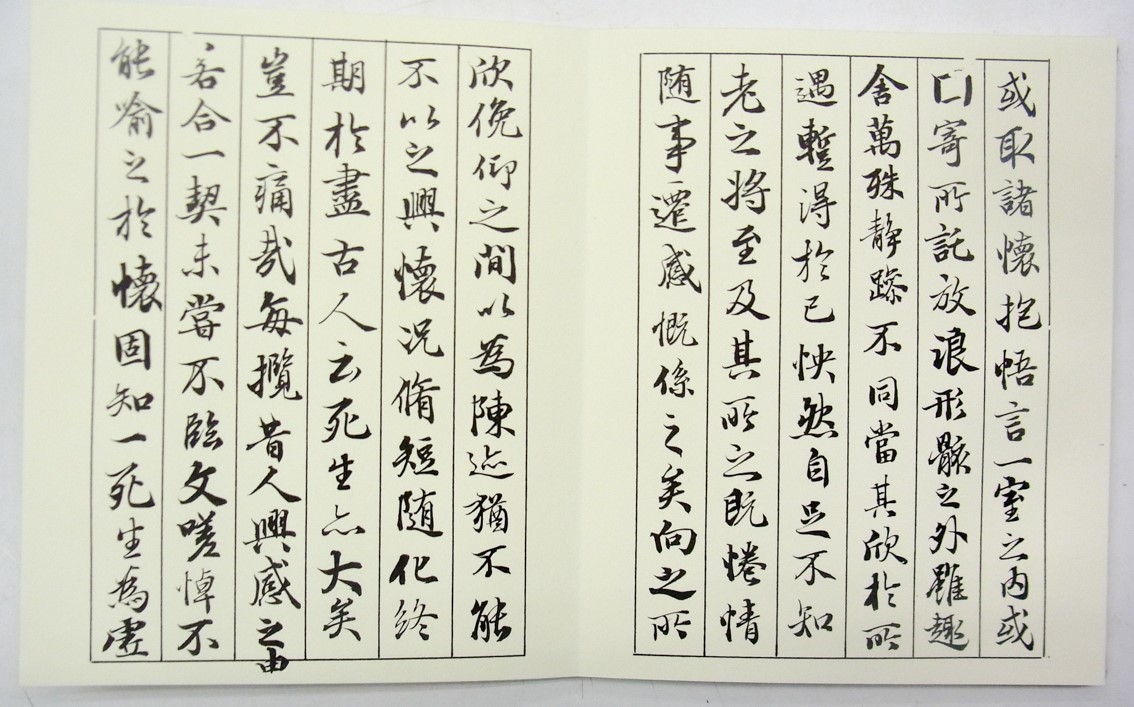 或取諸懷抱悟言一室之内或
寄所託放浪形骸之外雖趣
舍萬殊静躁不同當其欣於所
遇蹔得於己怏然自足不知
老之將至及其所之既惓情
随事遷感慨係之矣向之所
欣俛仰之閒以為陳迹猶不能
不以之興懷况脩短随化終
期於盡古人云死生亦大矣
豈不痛哉每攬昔人興感之由
若合一契未嘗不臨文嗟悼不
能喻之於懷固知一死生為虛